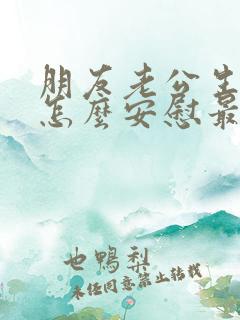 朋友老公生
怎麼安慰最
也鴨梨
未任同意禁止转载